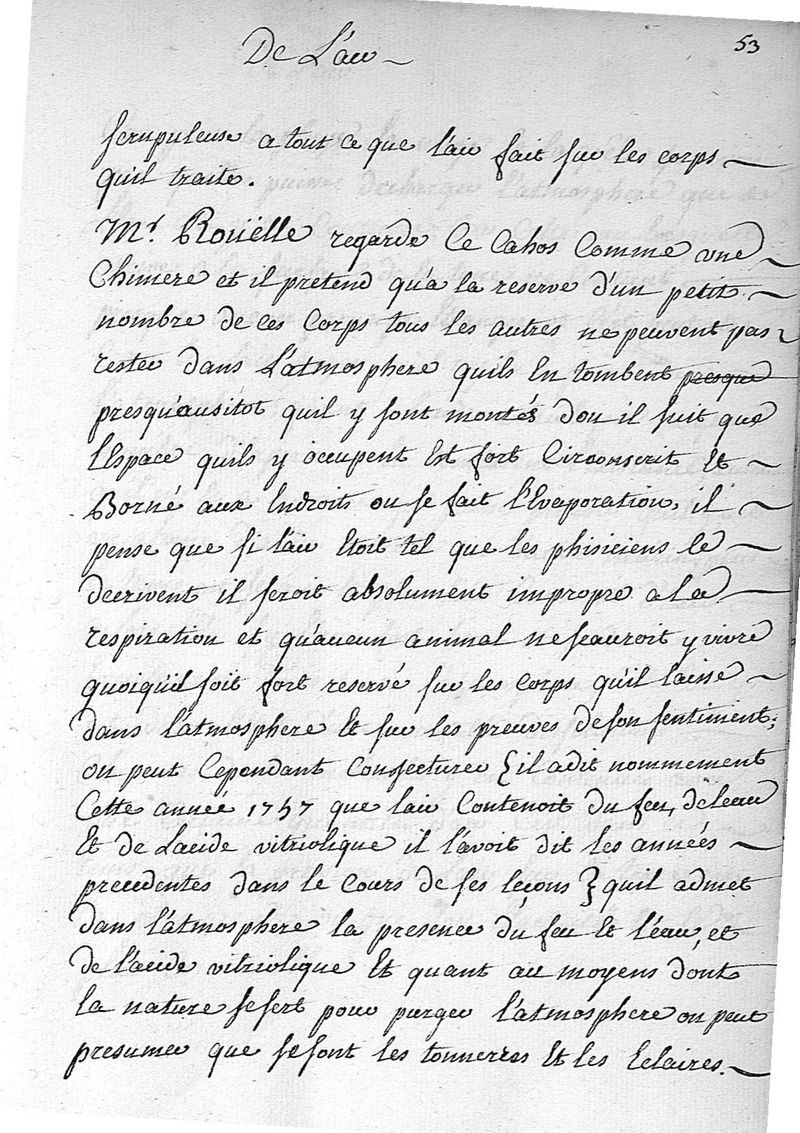 De L'air
53
scrupuleuse a tout ce que l'air fait sur les corps
qu'il traite.
Mr. Rouëlle regarde ce Cahos Comme une
Chimere et il pretend qu'a la reserve d'un petit
nombre de ces Corps tous les autres ne peuvent pas
rester dans L'atmosphere quils En tombent presque
presqu'ausitot quil y sont montés dou il suit que
l'Espace quils y occupent Est fort Circonscrit Et
Borné aux Endroits ou se fait l'Evaporation, il
pense que si l'air Etoit tel que les phisiciens le
decrivent il seroit absolument impropre a la
respiration et qu'aucun animal ne scauroit y vivre
quoiqu'il soit fort reservé sur les corps qu'il laisse
dans l'atmosphere Et sur les preuves de son sentiment;
on peut Cependant Conjecturer } il a dit nommement
Cette année 1757 que lair Contenoit du feu, de leau
Et de Lacide vitriolique il l'avoit dit les années
precedentes dans le Cours de ses leçons } quil admet
dans l'atmosphere la presence du feu Et l'eau, et
de l'acide vitriolique Et quant au moyens dont
la nature se sert pour purger l'atmosphere on peut
presumer que se sont les tonnerres Et les Eclaires.